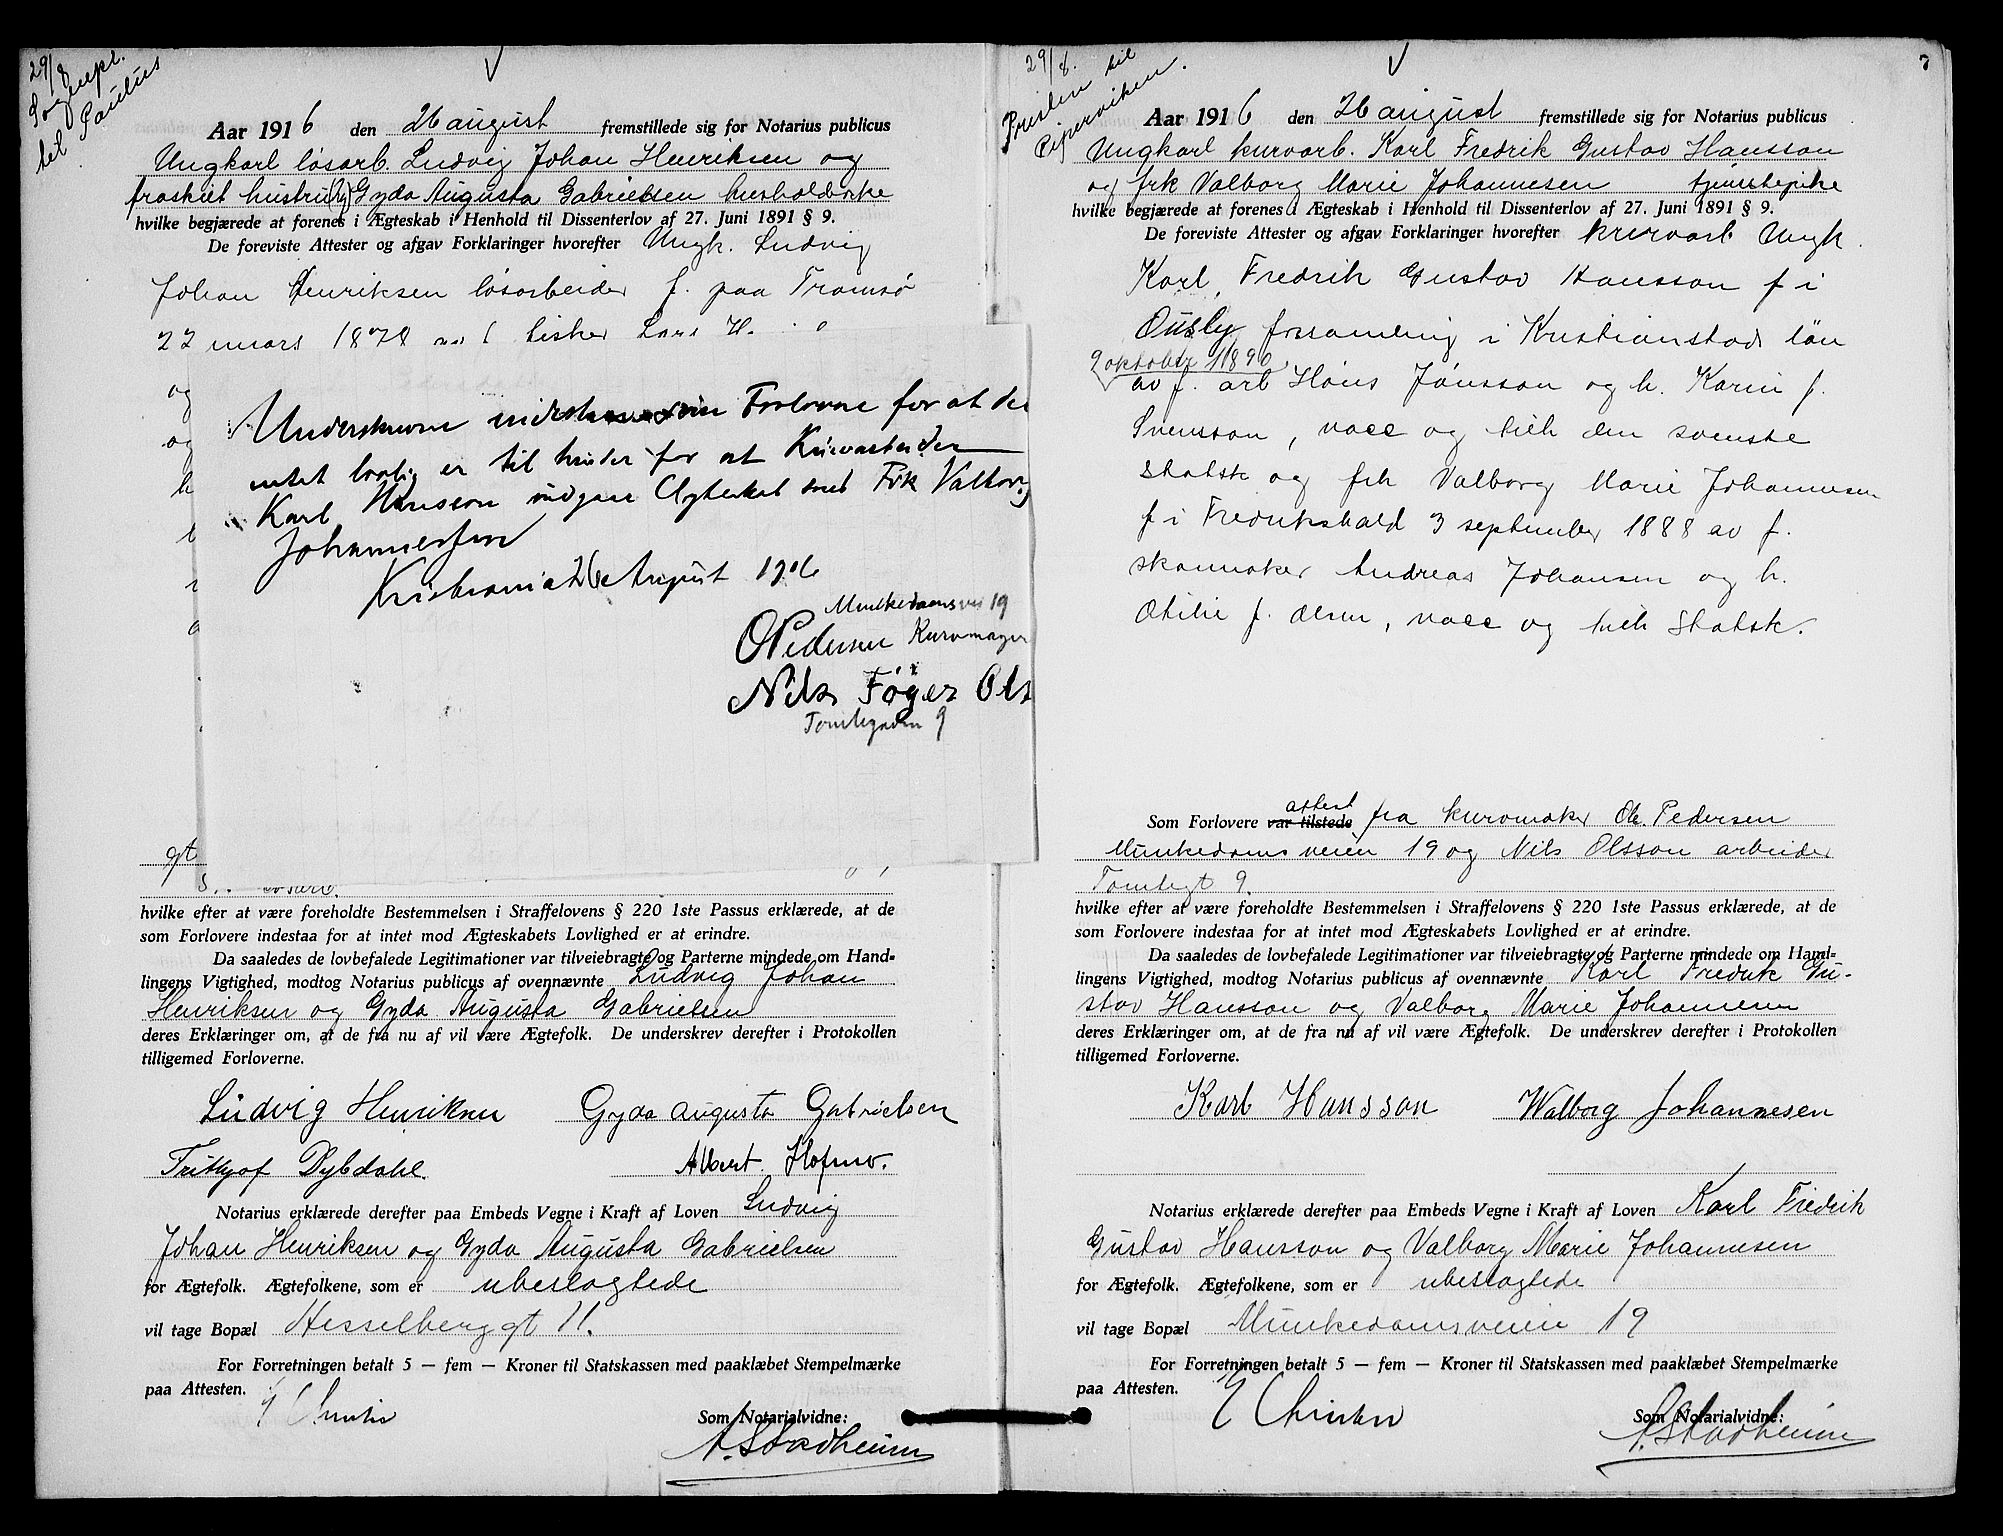 29/8
Sognepr.
til Paulus
Aar 1916 den 26 august fremstillede sig for Notarius publicus
Ungkarl løsarb. Ludvig Johan Henriksen og
fraskilt hustru Gyda Augusta Gabrielsen husholderske
hvilke begjærede at forenes i Ægteskab i Henhold til Dissenterlov af 27. Juni 1891 § 9.
De foreviste Attester og afgav Forklaringer hvorefter Ungk. Ludvig
Johan Henriksen løsarbeider f. paa Tromsø
22 mars 1878 av f fisker Lars H.
og
og
Underskrevne indestaar som Forlovere for at der
intet lovlig er til hinder for at Kurvarbeider
Karl Hansson indgaar Ægteskab med Frk Valborg
Johannessen
Kristiania 26 August 1916
Munkedamsvei 19
O Pedersen Kurvmager
Nils Föger Ols
Tomtegaden 9
gt
hvilke efter at være foreholdte Bestemmelsen i Straffelovens § 220 1ste Passus erklærede, at de
som Forlovere indestaa for at intet mod Ægteskabets Lovlighed er at erindre.
Da saaledes de lovbefalede Legitimationer var tilveiebragte og Parterne mindede om Hand-
lingens Vigtighed, modtog Notarius publicus af ovennævnte Ludvig Johan
Henriksen og Gyda Augusta Gabrielsen
deres Erklæringer om, at de fra nu af vil være Ægtefolk. De underskrev derefter i Protokollen
tilligemed Forloverne.
Ludvig Henriksen Gyda Augusta Gabrielsen
Fritjyof Dybdahl. Albert Hofmo.
Notarius erklærede derefter paa Embeds Vegne i Kraft af Loven Ludvig
Johan Henriksen og Gyda Augusta Gabrielsen
for Ægtefolk. Ægtefolkene, som er ubeslægtede
vil tage Bopæl Hesselberg gt 11.
For Forretningen betalt 5 — fem — Kroner til Statskassen med paaklæbet Stempelmærke
paa Attesten.
Som Notarialvidne:
A. Stadheim
7
29/8.
Presten til
Pipervviken.
Aar 1916 den 26 august fremstillede sig for Notarius publicus
Ungkarl kurvarb. Karl Fredrik Gustav Hansson
og frk Valborg Marie Johannesen tjenestepike
hvilke begjærede at forenes i Ægteskab i Henhold til Dissenterlov af 27. Juni 1891 § 9.
De foreviste Attester og afgav Forklaringer hvorefter kurvarb. Ungk.
Karl Fredrik Gustav Hansson f i
Ousby forsamling i Kristianstads län
9 oktober 1890
av f. arb Hans Jönsson og h. Karin f.
Svensson, vacc og tilh den svenske
statsk og frk Valborg Marie Johannesen
f i Fredrikshald 3 september 1888 av f.
skomaker Andreas Johansen og h.
Otilie f. Olsen, vacc og tilh Statsk.
Som Forlovere var tilstede attest fra kurvmaker Ole Pedersen
Munkedamsveien 19 og Nils Olsson arbeider
Tomtegt 9.
hvilke efter at være foreholdte Bestemmelsen i Straffelovens § 220 1ste Passus erklærede, at de
som Forlovere indestaa for at intet mod Ægteskabets Lovlighed er at erindre.
Da saaledes de lovbefalede Legitimationer var tilveiebragte og Parterne mindede om Hand-
lingens Vigtighed, modtog Notarius publicus af ovennævnte Karl Fredrik Gu-
stav Hansson og Valborg Marie Johannesen
deres Erklæringer om, at de fra nu af vil være Ægtefolk. De underskrev derefter i Protokollen
tilligemed Forloverne.
Karl Hansson Walborg Johannesen
Notarius erklærede derefter paa Embeds Vegne i Kraft af Loven Karl Fredrik
Gustav Hansson og Valborg Marie Johannesen
for Ægtefolk. Ægtefolkene, som er ubeslægtede
vil tage Bopæl Munkedamsveien 19
For Forretningen betalt 5 — fem — Kroner til Statskassen med paaklæbet Stempelmærke
paa Attesten.
Som Notarialvidne:
A. Stadheim